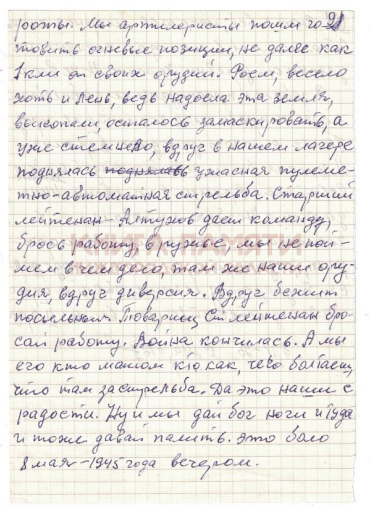 21
роты. Мы артилеристы пошли го-
товить огневые позиции, не далее как
1 км от своих орудий. Роем, весело
хоть и лень, ведь надоела эта земля,
выкопали, осталось замаскировать, а
уже стемнело, вдруг в нашем лагере
поднялась ужасная пулеме-
тно-автоматная стрельба. Старший
лейтенан - Алтухов дает команду,
брось работу, в ружье, мы не пой-
мем в чем дело, там же наши ору-
дия, вдруг диверсия. Вдруг бежит
посыльный Товарищ Ст лейтенан бро-
сай работу. Война кончилась. А мы
его кто матом кто как, чего болтаеш,
что там за стрельба. Да это наши с
радости. Ну и мы дай бог ноги и туда
и тоже давай палить. Это было
8 мая - 1945 года вечером.